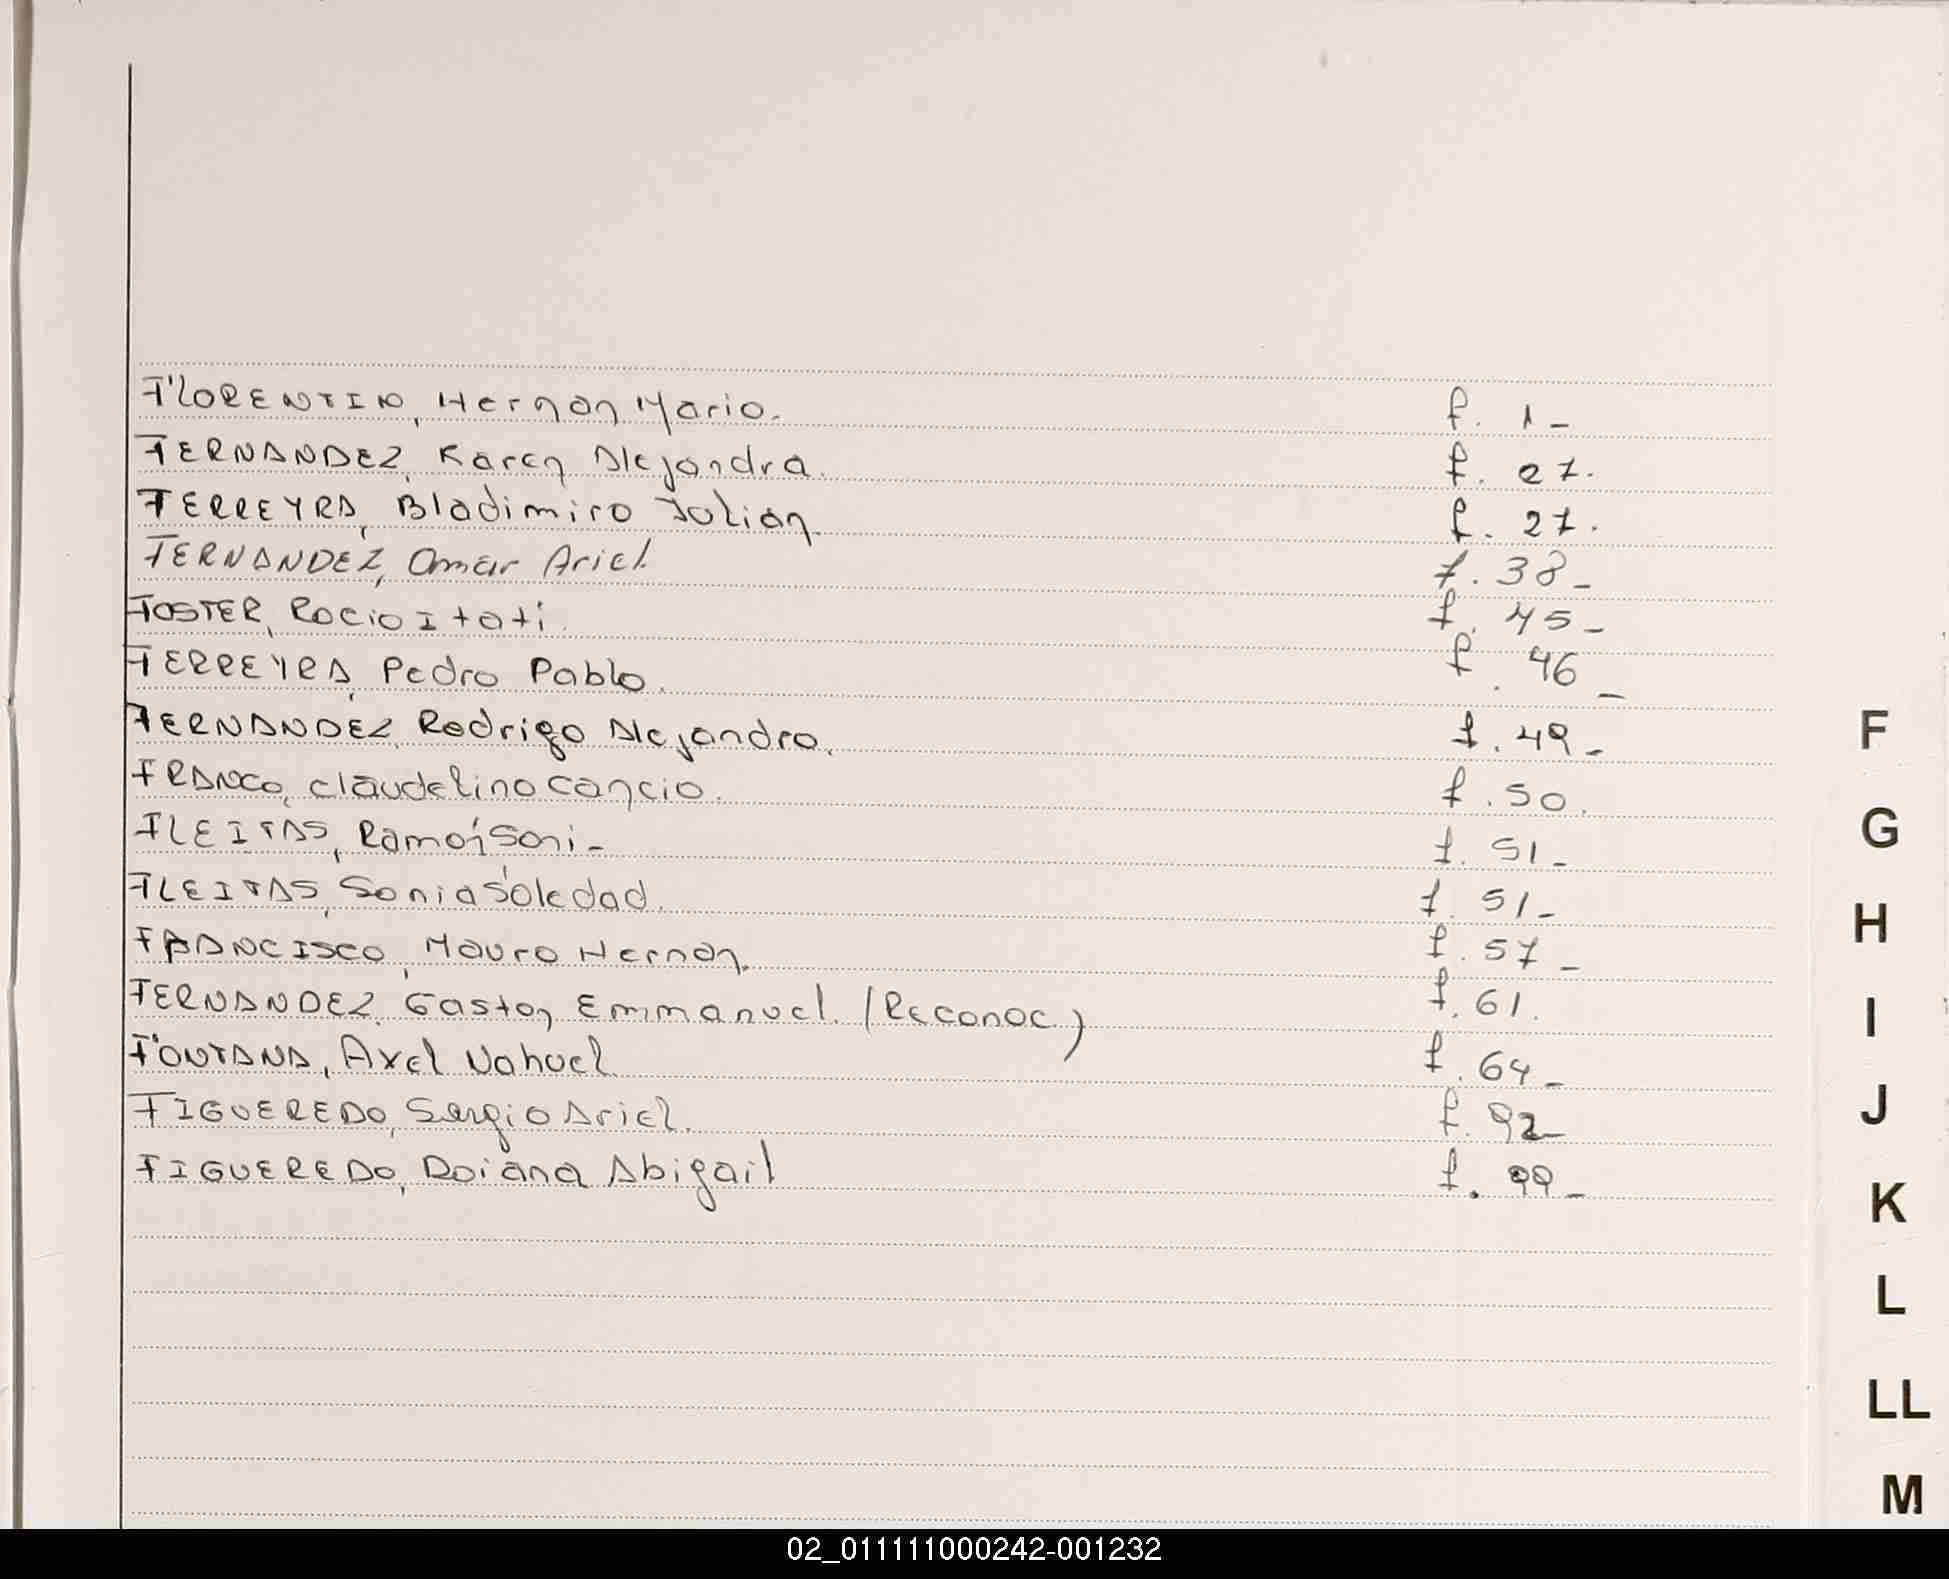 FLORENTIN, Hernan Mario. f. 1-
FERNANDEZ, Karen Alejandra. f. 27.
FERREYRA, Bladimiro Julian f. 27.
FERNANDEZ, Omar Ariel. f. 38-
FOSTER, Rocio Itati. f. 45-
FERREYRA, Pedro Pablo. f. 46-
FERNANDEZ, Rodrigo Alejandro. f. 49-
FRANCO, Claudelino Cancio. f. 50.
FLEITAS, Ramoi Soni- f. 51-
FLEITAS, Sonia Soledad. f. 51-
FRANCISCO, Mauro Hernan. f. 57-
FERNANDEZ, Gaston Emmanuel. (Reconoc.) f. 61.
FONTANA, Axel Nahuel f. 64-
FIGUEREDO, Sergio Ariel. f. 92-
FIGUEREDO, Daiana Abigail f. 99-
F
G
H
I
J
K
L
LL
M
02_011111000242-001232